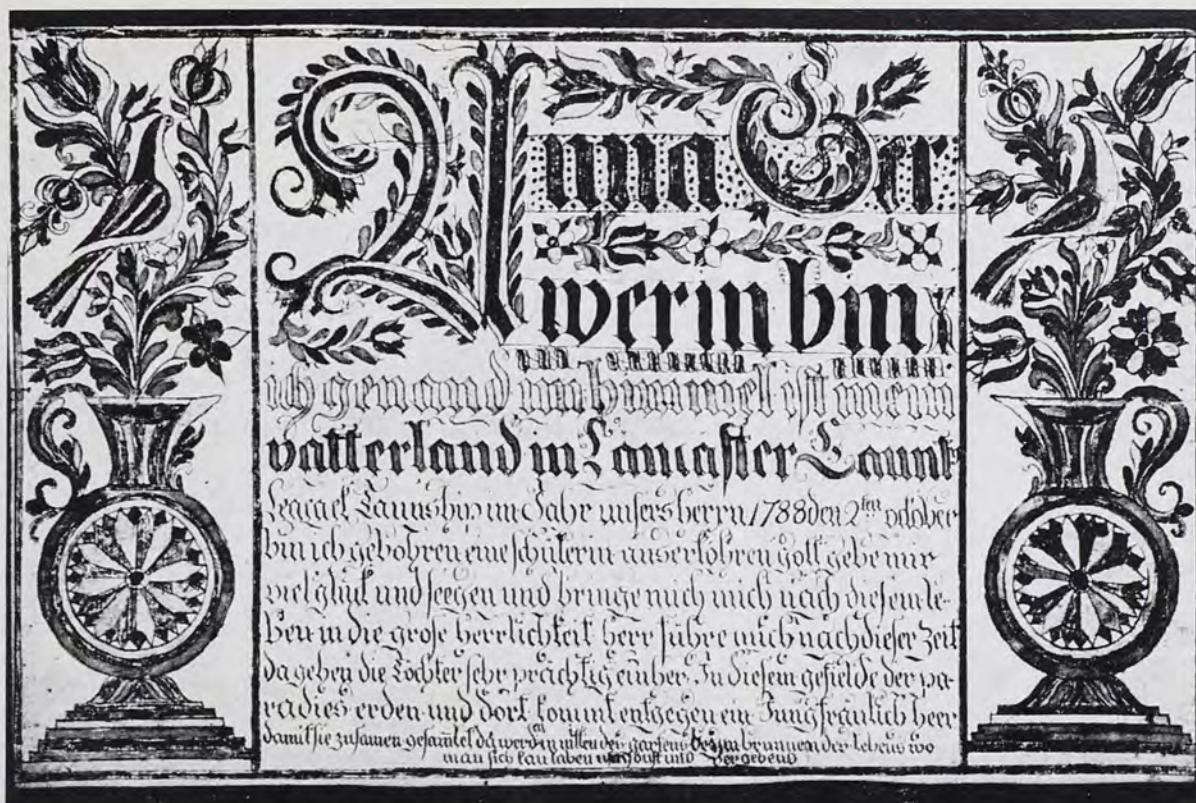 Anna Ger
werin bin
ich genand im himmel ist mein
vatterland in Lancaster Caunt
Leacaek Taunschip im Jahr unsers herrn 1788 den 2ten october
bin ich gebohren eine schülerin auserkohren gott gebe mir
viel glük und seegen und bringe mich nach diesem le-
ben in die grose herrlichkeit herr führe mich nach dieser Zeit
da gehen die Töchter sehr prächtig einher. In diesem gefielde der pa-
radies erden und dort kommt entgegen ein Jungfräulich heer
damit sie zusamen gesamlet da werden mitten des gartens beym brunnen des lebens wo
man sich kan laben und